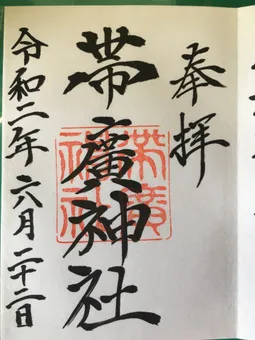 奉拝
帯廣神社
令和二年六月二十二日